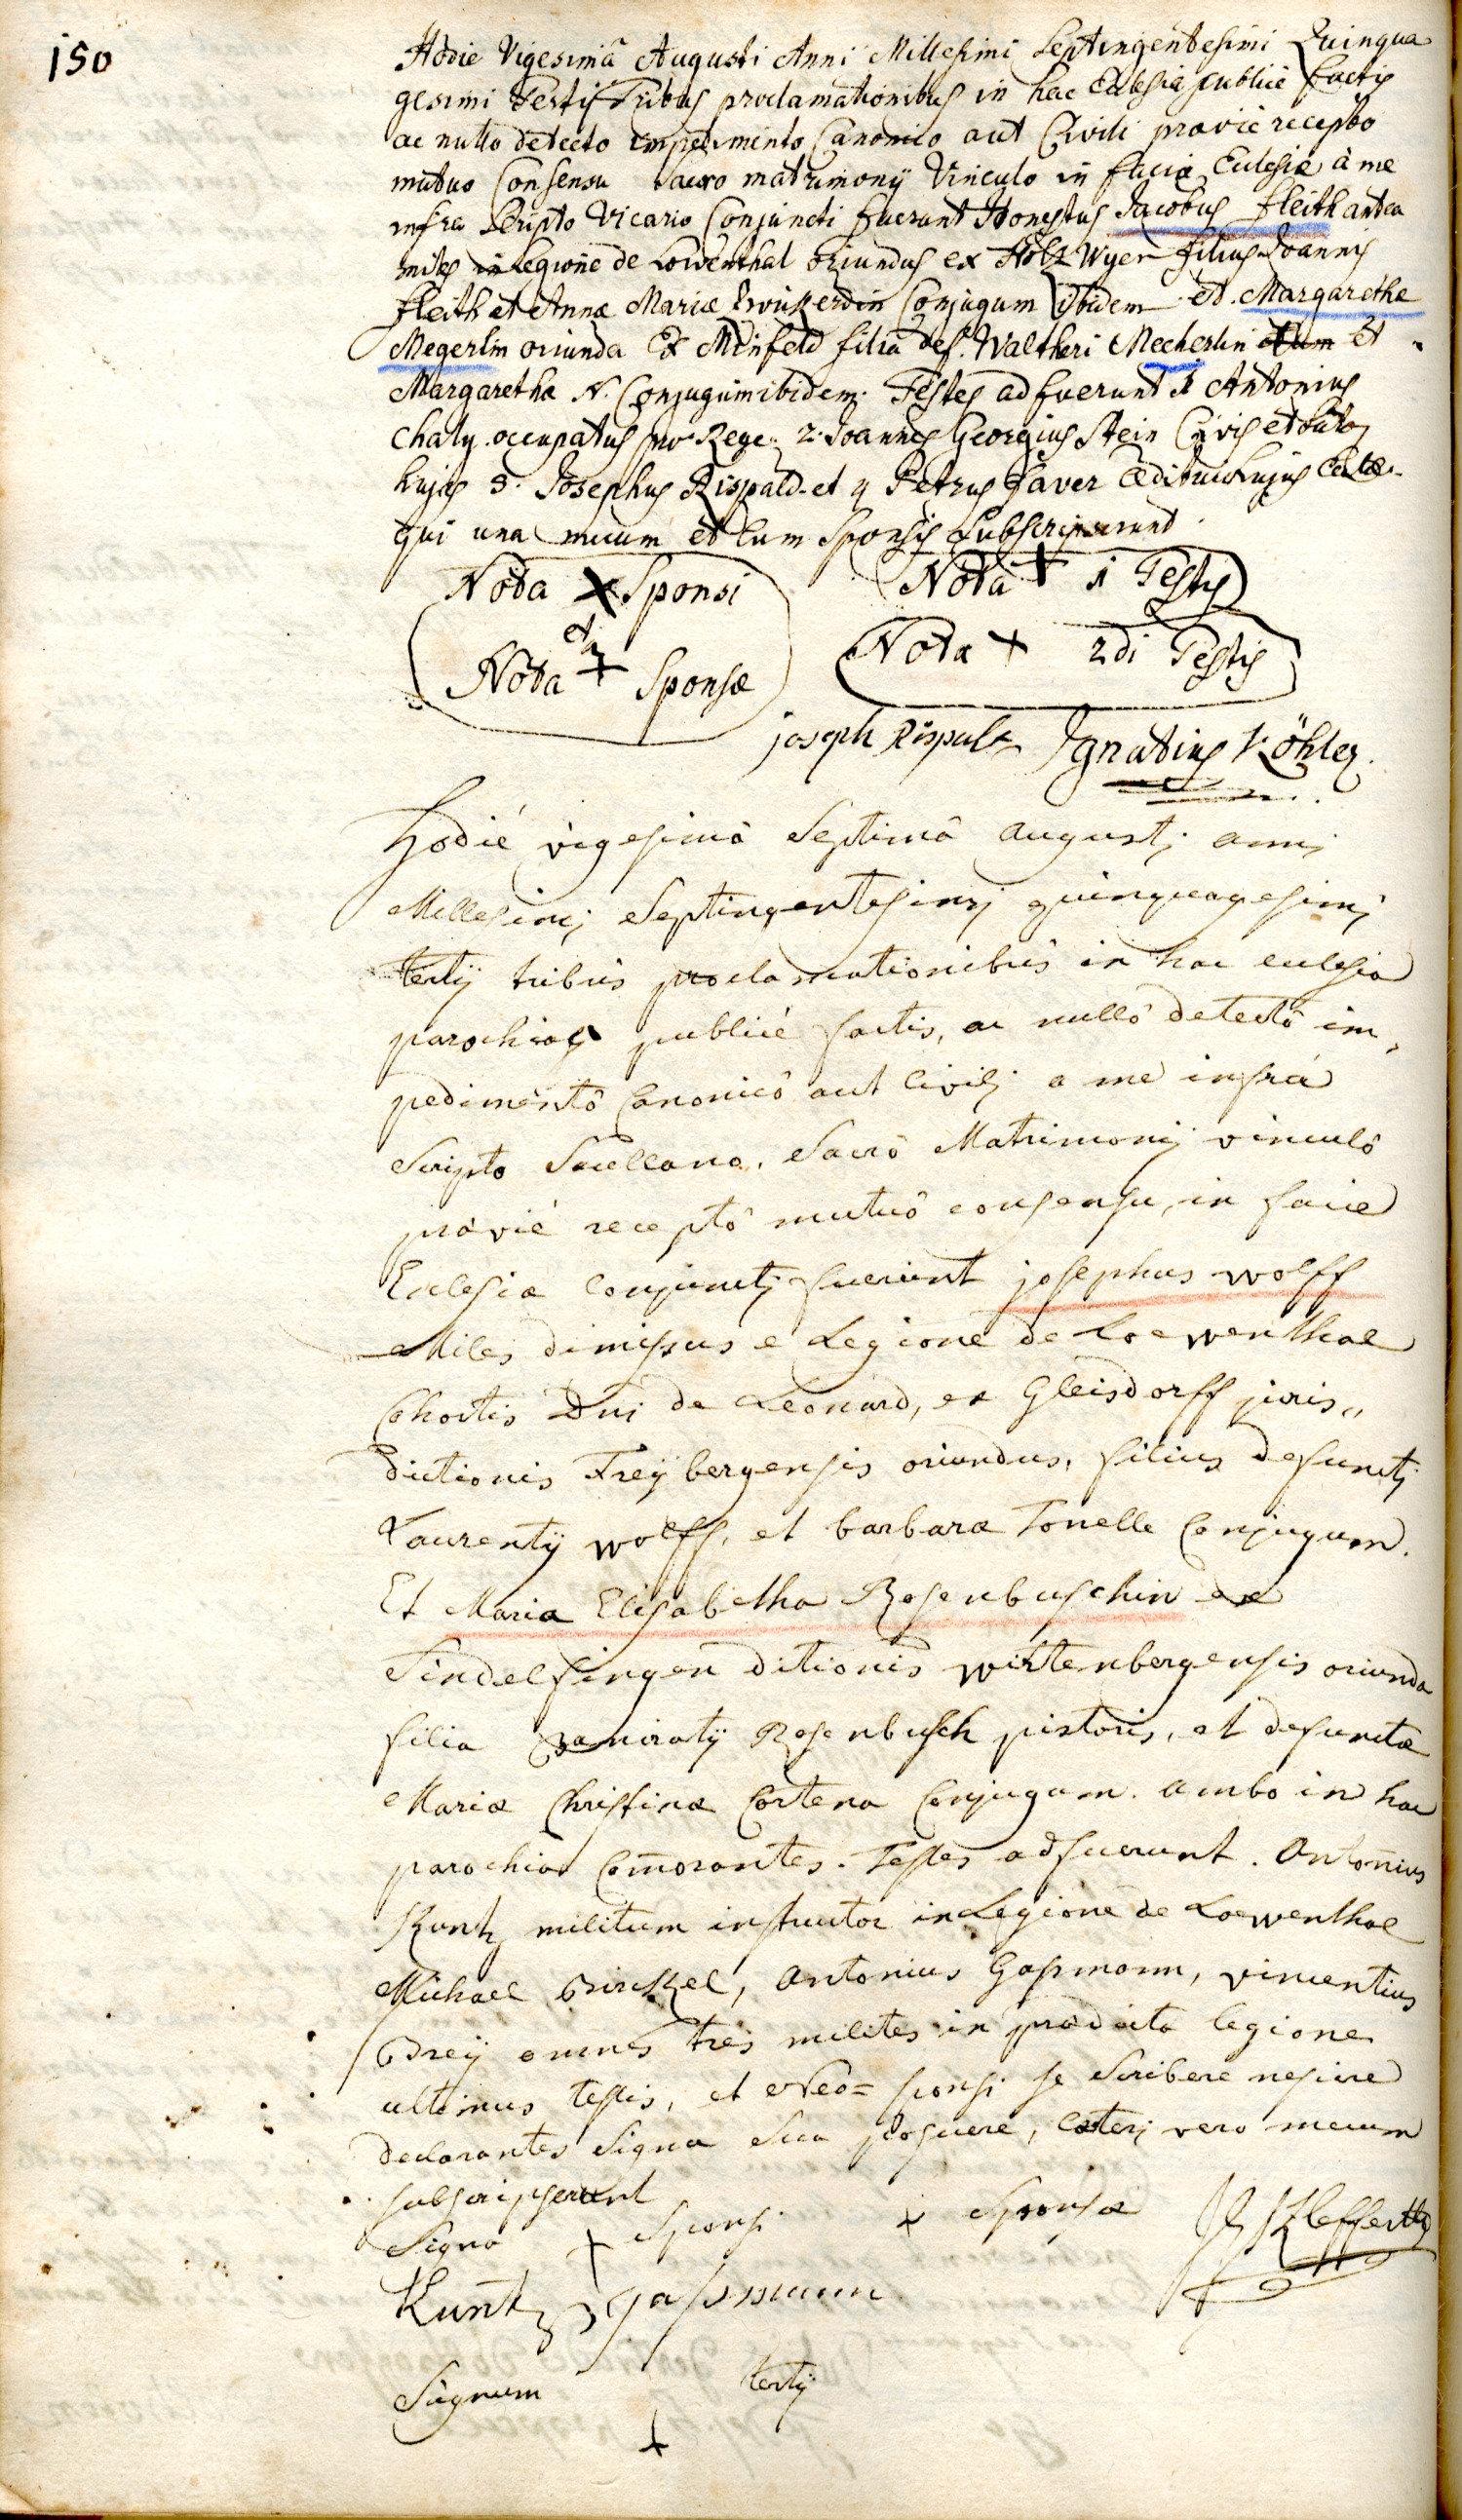 150
Hodie Vigesimâ Augusti Anni Millesimi Septingentesimi Quinqua
gesimi Tertij Tribus proclamationibus in hac Eclesia publicè factis
ac nullo detecto impedimento Canonico aut Civili praevie recepto
mutuo Consensu Sacro matrimonij Vinculo in facie Eclesiae à me
infra Scripto Vicario Conjuncti fuerunt Honestus Jacobus fleith antea
miles in Legione de Lowenthal oriundus ex Holtz Wyer filius Joannis
fleith et Annae Mariae Conjugum ibidem et Margaretha
Megerlin oriunda Ex Minfeld filia def. Waltheri Mecherlin et
Margaretha N. Conjugum ibidem. Testes adfuerunt 1 Antonius
Chaly occupatus pro Rege 2. Joannes Georgius Stein Civis et
hujas 3. Josephus Rispald et 4 Petrus faver aedituus hujus Ecclae
qui una mecum et Cum Sponsis Subscripserunt
Nota x Sponsi Nota + 1 Testis
et
Nota + Sponsae Nota + 2di Testis
joseph Rispult Ignatius Köhler
Hodié vigesimâ Septimâ augustj annj
Millesimj Septingentesimj quinquagesimj
tertij tribus proclamationibus in hac eclesia
parochiali publicé factis, ac nullô detectô im„
pedimentô Canonicô aut Civilj a me infrá
Scripto Sacellano, Sacrô Matrimonij vinculô
praevié receptô mutuô consensu, in facie
Eclesiae Conjunctj fuerunt josephus wolff
Miles dimissus e Legione de Loewenthal
Cohortis Dni de Leonard, ex Gleisdorff juris„
dictionis Freÿbergensis oriundus, filius defunctj
Laurentij wolff, et barbara Tonelle Conjugum.
Et Maria Elisabetha Rosenbuschin ex
Sindelfingen ditionis wirtenbergensis oriunda
filia Rosenbusch pistoris, et defunctae
Mariae Christinae Cortena Conjugum. ambo in hac
parochia Com̄orantes. Testes adfuerunt. Antonius
Kuntz militum instructor in Legione de Loewenthal
Michael Birckel, Antonius Gassmann, vincentius
Breÿ omnes tres milites in praedicta legione
ultimus testis, et Neo= sponsi se Scribere nescire
declarantes Signa Sua posuere, Caeterj vero mecum
subscripserunt
Signa + Sponsi + Sponsae
Kuntz gassmann
Signum tertij
+